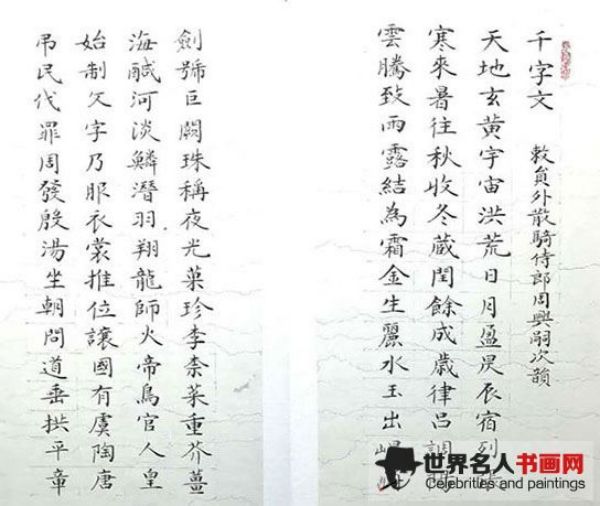 千字文 敕員外散騎侍郎周興嗣次韻
天地玄黃宇宙洪荒日月盈昃辰宿列
寒來暑往秋收冬蔵閏餘成歲律呂調
雲騰致雨露結為霜金生麗水玉出崐
劍號巨闕珠稱夜光菓珍李柰菜重芥薑
海鹹河淡鱗潛羽翔龍師火帝鳥官人皇
始制文字乃服衣裳推位讓國有虞陶唐
吊民伐罪周發殷湯坐朝問道垂拱平章
世界名人书画网
Celebrities and paintings